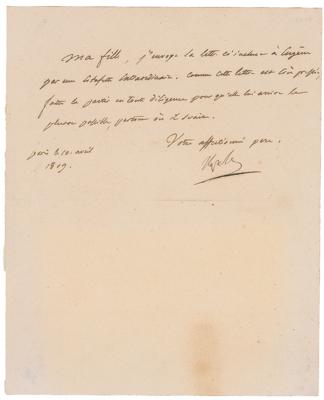 Ma fille, j'envoye la lettre ci-incluse à Eugène
par une estafette extraordinaire. Comme cette lettre est très pressée,
faites la partir en toute diligence pour qu'elle lui arrive le
plus possible, partout où il serait.
Votre affectionné père.
paris le 10 avril
1809.